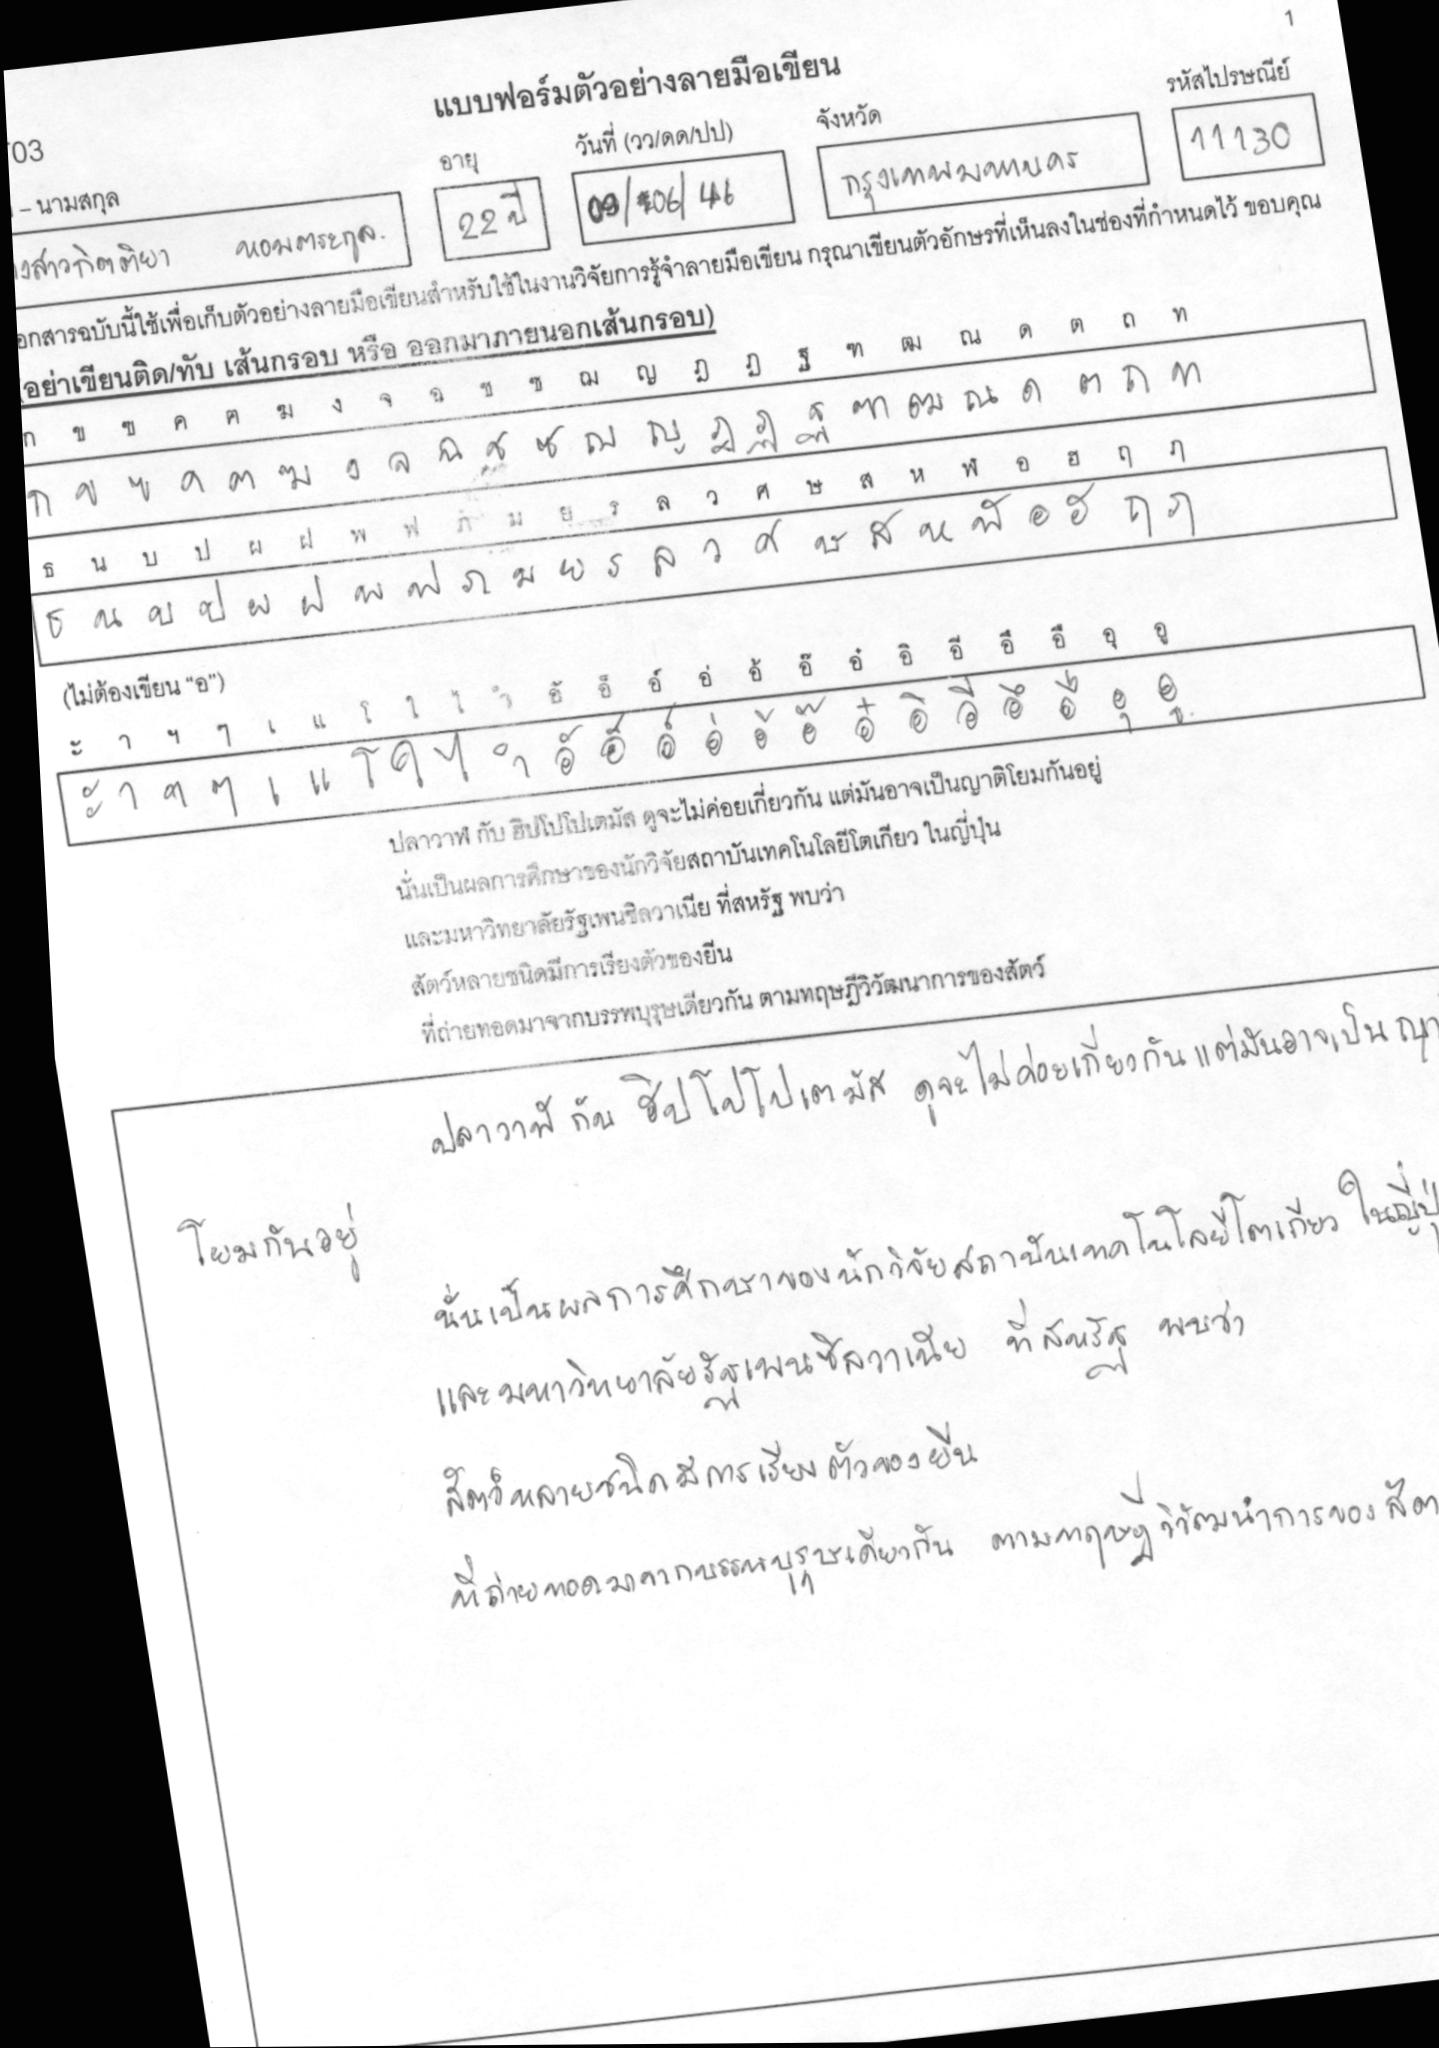 1
แบบฟอร์มตัวอย่างลายมือเขียน
T03
– นามสกุล อายุ วันที่ (วว/ดด/ปป) จังหวัด รหัสไปรษณีย์
งสาวกิตติยา หอมตระกูล. 22 ปี 09/06/46 กรุงเทพมหานคร 11130
อกสารฉบับนี้ใช้เพื่อเก็บตัวอย่างลายมือเขียนสำหรับใช้ในงานวิจัยการรู้จำลายมือเขียน กรุณาเขียนตัวอักษรที่เห็นลงในช่องที่กำหนดไว้ ขอบคุณ
(อย่าเขียนติด/ทับ เส้นกรอบ หรือ ออกมาภายนอกเส้นกรอบ)
ก ข ฃ ค ฅ ฆ ง จ ฉ ช ซ ฌ ญ ฎ ฏ ฐ ฑ ฒ ณ ด ต ถ ท
ก ข ฃ ค ฅ ฆ ง จ ฉ ช ซ ฌ ญ ฎ ฏ ฐ ฑ ฒ ณ ด ต ถ ท
ธ น บ ป ผ ฝ พ ฟ ภ ม ย ร ล ว ศ ษ ส ห ฬ อ ฮ ฤ ฦ
ธ น บ ป ผ ฝ พ ฟ ภ ม ย ร ล ว ศ ษ ส ห ฬ อ ฮ ฤ ฦ
(ไม่ต้องเขียน "อ")
ะ า ฯ ๆ เ แ โ ใ ไ ำ อั อ็ อ์ อ่ อ้ อ๊ อ๋ อิ อี อึ อื อุ อู
ะ า ฯ ๆ เ แ โ ใ ไ ำ อั อ็ อ์ อ่ อ้ อ๊ อ๋ อิ อี อึ อื อุ อู
ปลาวาฬ กับ ฮิปโปโปเตมัส ดูจะไม่ค่อยเกี่ยวกัน แต่มันอาจเป็นญาติโยมกันอยู่
นั่นเป็นผลการศึกษาของนักวิจัยสถาบันเทคโนโลยีโตเกียว ในญี่ปุ่น
และมหาวิทยาลัยรัฐเพนซิลวาเนีย ที่สหรัฐ พบว่า
สัตว์หลายชนิดมีการเรียงตัวของยีน
ที่ถ่ายทอดมาจากบรรพบุรุษเดียวกัน ตามทฤษฎีวิวัฒนาการของสัตว์
ปลาวาฬ กับ ฮิปโปโปเตมัส ดูจะไม่ค่อยเกี่ยวกัน แต่มันอาจเป็น ญา
โยมกันอยู่
นั่นเป็นผลการศึกษาของนักวิจัยสถาบันเทคโนโลยีโตเกียว ในญี่ปุ่
และมหาวิทยาลัยรัฐเพนซิลวาเนีย ที่สหรัฐ พบว่า
สัตว์หลายชนิดมีการเรียงตัวของยีน
ที่ถ่ายทอดมาจากบรรพบุรุษเดียวกัน ตามทฤษฎีวิวัฒนำการของ สัต